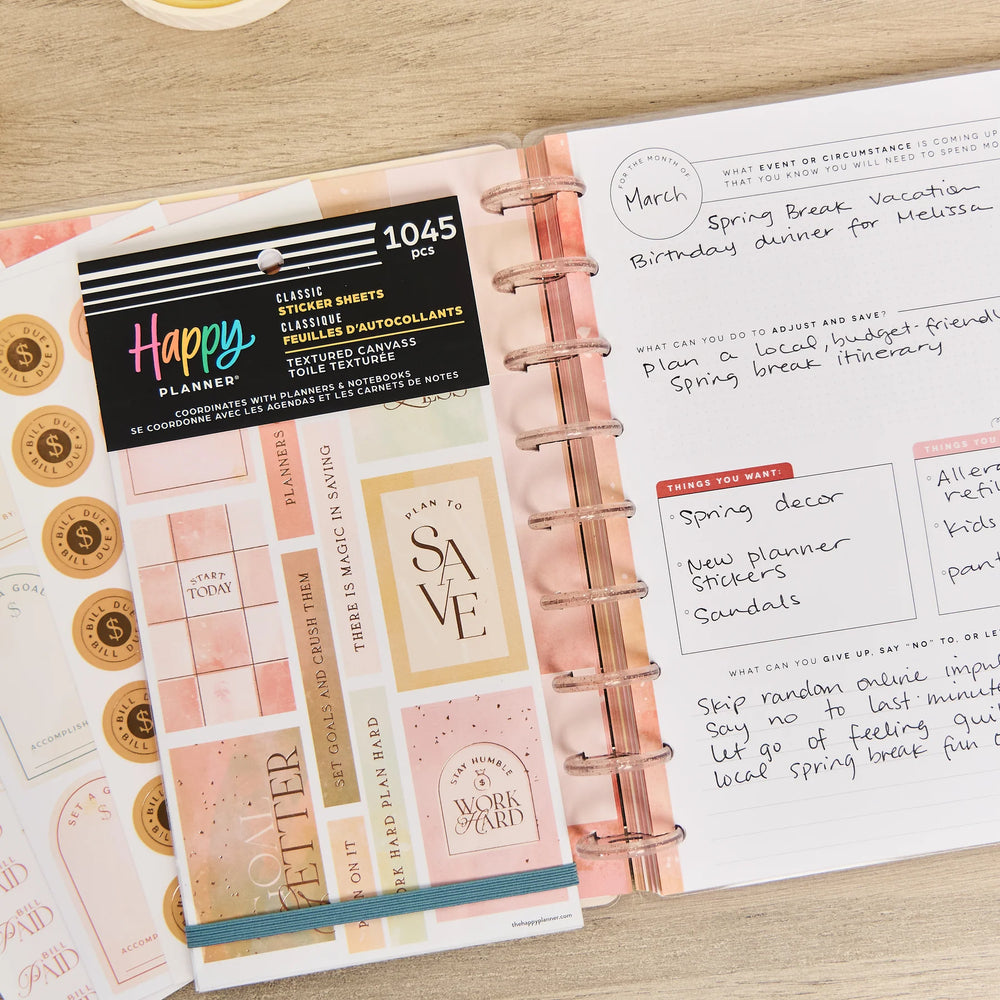 1045
pcs
Happy
PLANNER®
CLASSIC
STICKER SHEETS
CLASSIQUE
FEUILLES D'AUTOCOLLANTS
TEXTURED CANVAS
TOILE TEXTURÉE
COORDINATES WITH PLANNERS & NOTEBOOKS
SE COORDONNE AVEC LES AGENDAS ET LES CARNETS DE NOTES
PLANNERS
THERE IS MAGIC IN SAVING
PLAN TO
SAVE
START
TODAY
SET GOALS AND CRUSH THEM
WORK HARD PLAN HARD
STAY HUMBLE
$
WORK
HARD
GOAL
GETTER
PLAN ON IT
thehappyplanner.com
BILL DUE
$
BILL DUE
BILL DUE
$
BILL DUE
BILL DUE
$
BILL DUE
BILL DUE
$
BILL
BILL
PAID
BILL
PAID
SET A G
ACCOMP
ACCOMPLISH
A GOAL
$
BY
FOR THE MONTH OF
March
WHAT EVENT OR CIRCUMSTANCE IS COMING UP
THAT YOU KNOW YOU WILL NEED TO SPEND MO
Spring Break Vacation
Birthday dinner for Melissa
WHAT CAN YOU DO TO ADJUST AND SAVE?
Plan a local, budget-friendl
Spring break itinerary
THINGS YOU WANT:
Spring decor
New planner
stickers
Sandals
THINGS YOU
Allerg
refil
Kids
pant
WHAT CAN YOU GIVE UP, SAY "NO" TO, OR LE
Skip random online impul
Say no to last-minute
Let go of feeling guil
local spring break fun